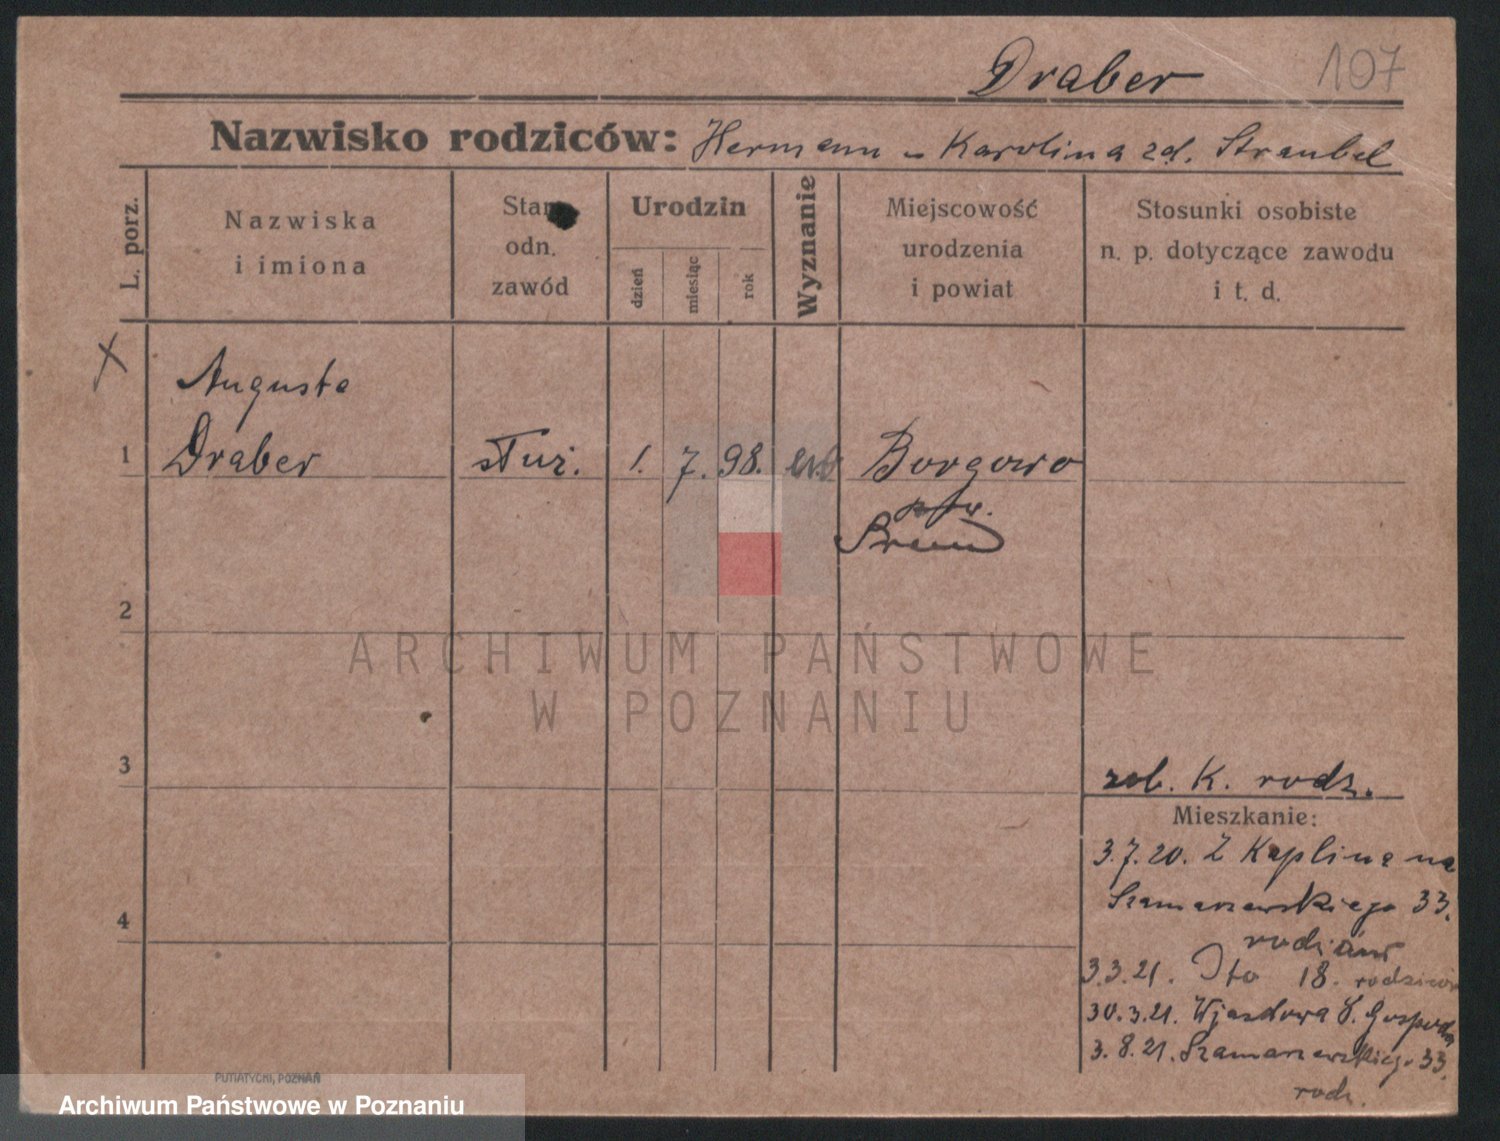 Draber 107
Nazwisko rodziców: Hermann Karolina zd. Straubel
L. porz.
Nazwiska
i imiona
Stan
odn.
zawód
Urodzin
dzień
miesiąc
rok
Wyznanie
Miejscowość
urodzenia
i powiat
Stosunki osobiste
n. p. dotyczące zawodu
i t. d.
X
Augusta
1 Draber służ. 1. 7. 98. Borgowo
Srem
2
ARCHIWUM PAŃSTWOWE
W POZNANIU
3
zob. K. rodz.
Mieszkanie:
3.7.20. Z Kaplina na
Szamarzewskiego 33.
4
3.3.21. Ito 18. rodziców
30.3.21. Wjazdowa
3.8.21. Szamarzewskiego 33.
rodz.
PUTIATYCKI, POZNAŃ
Archiwum Państwowe w Poznaniu